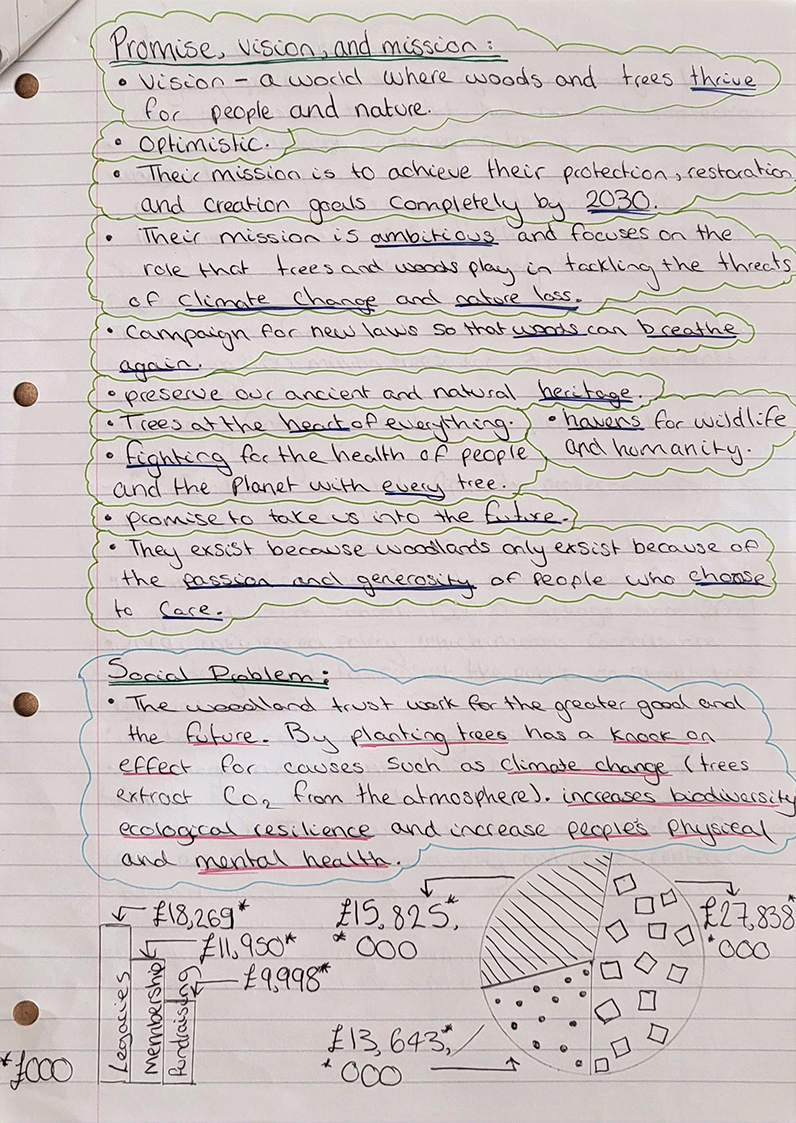 Promise, vision, and mission:
• Vision – a world where woods and trees thrive
for people and nature.
• Optimistic.
• Their mission is to achieve their protection, restoration
and creation goals completely by 2030.
• Their mission is ambitious and focuses on the
role that trees and woods play in tackling the threats
of climate change and nature loss.
• Campaign for new laws so that woods can breathe
again.
• preserve our ancient and natural heritage.
• Trees at the heart of everything.
• havens for wildlife
and humanity.
• fighting for the health of people
and the planet with every tree.
• promise to take us into the future.
• They exsist because woodlands only exsist because of
the passion and generosity of people who choose
to care.
Social Problem:
• The woodland trust work for the greater good and
the future. By planting trees has a knock on
effect for causes such as climate change (trees
extract CO₂ from the atmosphere). increases biodiversity
ecological resilience and increase people's physical
and mental health.
£18,269*
£11,950*
£9,998*
Legacies
Membership
fundraising
*£000
£15,825,*
*000
£27,838*
*000
£13,643,*
*000